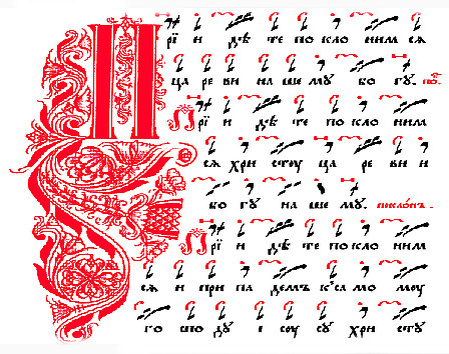 П рї и дѣ те по кло ним сѧ
ца ре ви на ше мꙋ бо гꙋ.
П рї и дѣ те по кло ним
сѧ хри стоу ца ре ви и
бо гꙋ на ше мꙋ. поклонъ.
П рї и дѣ те по кло ним
сѧ и при па демъ к са мо моу
го спо дꙋ і соу сꙋ хри стꙋ